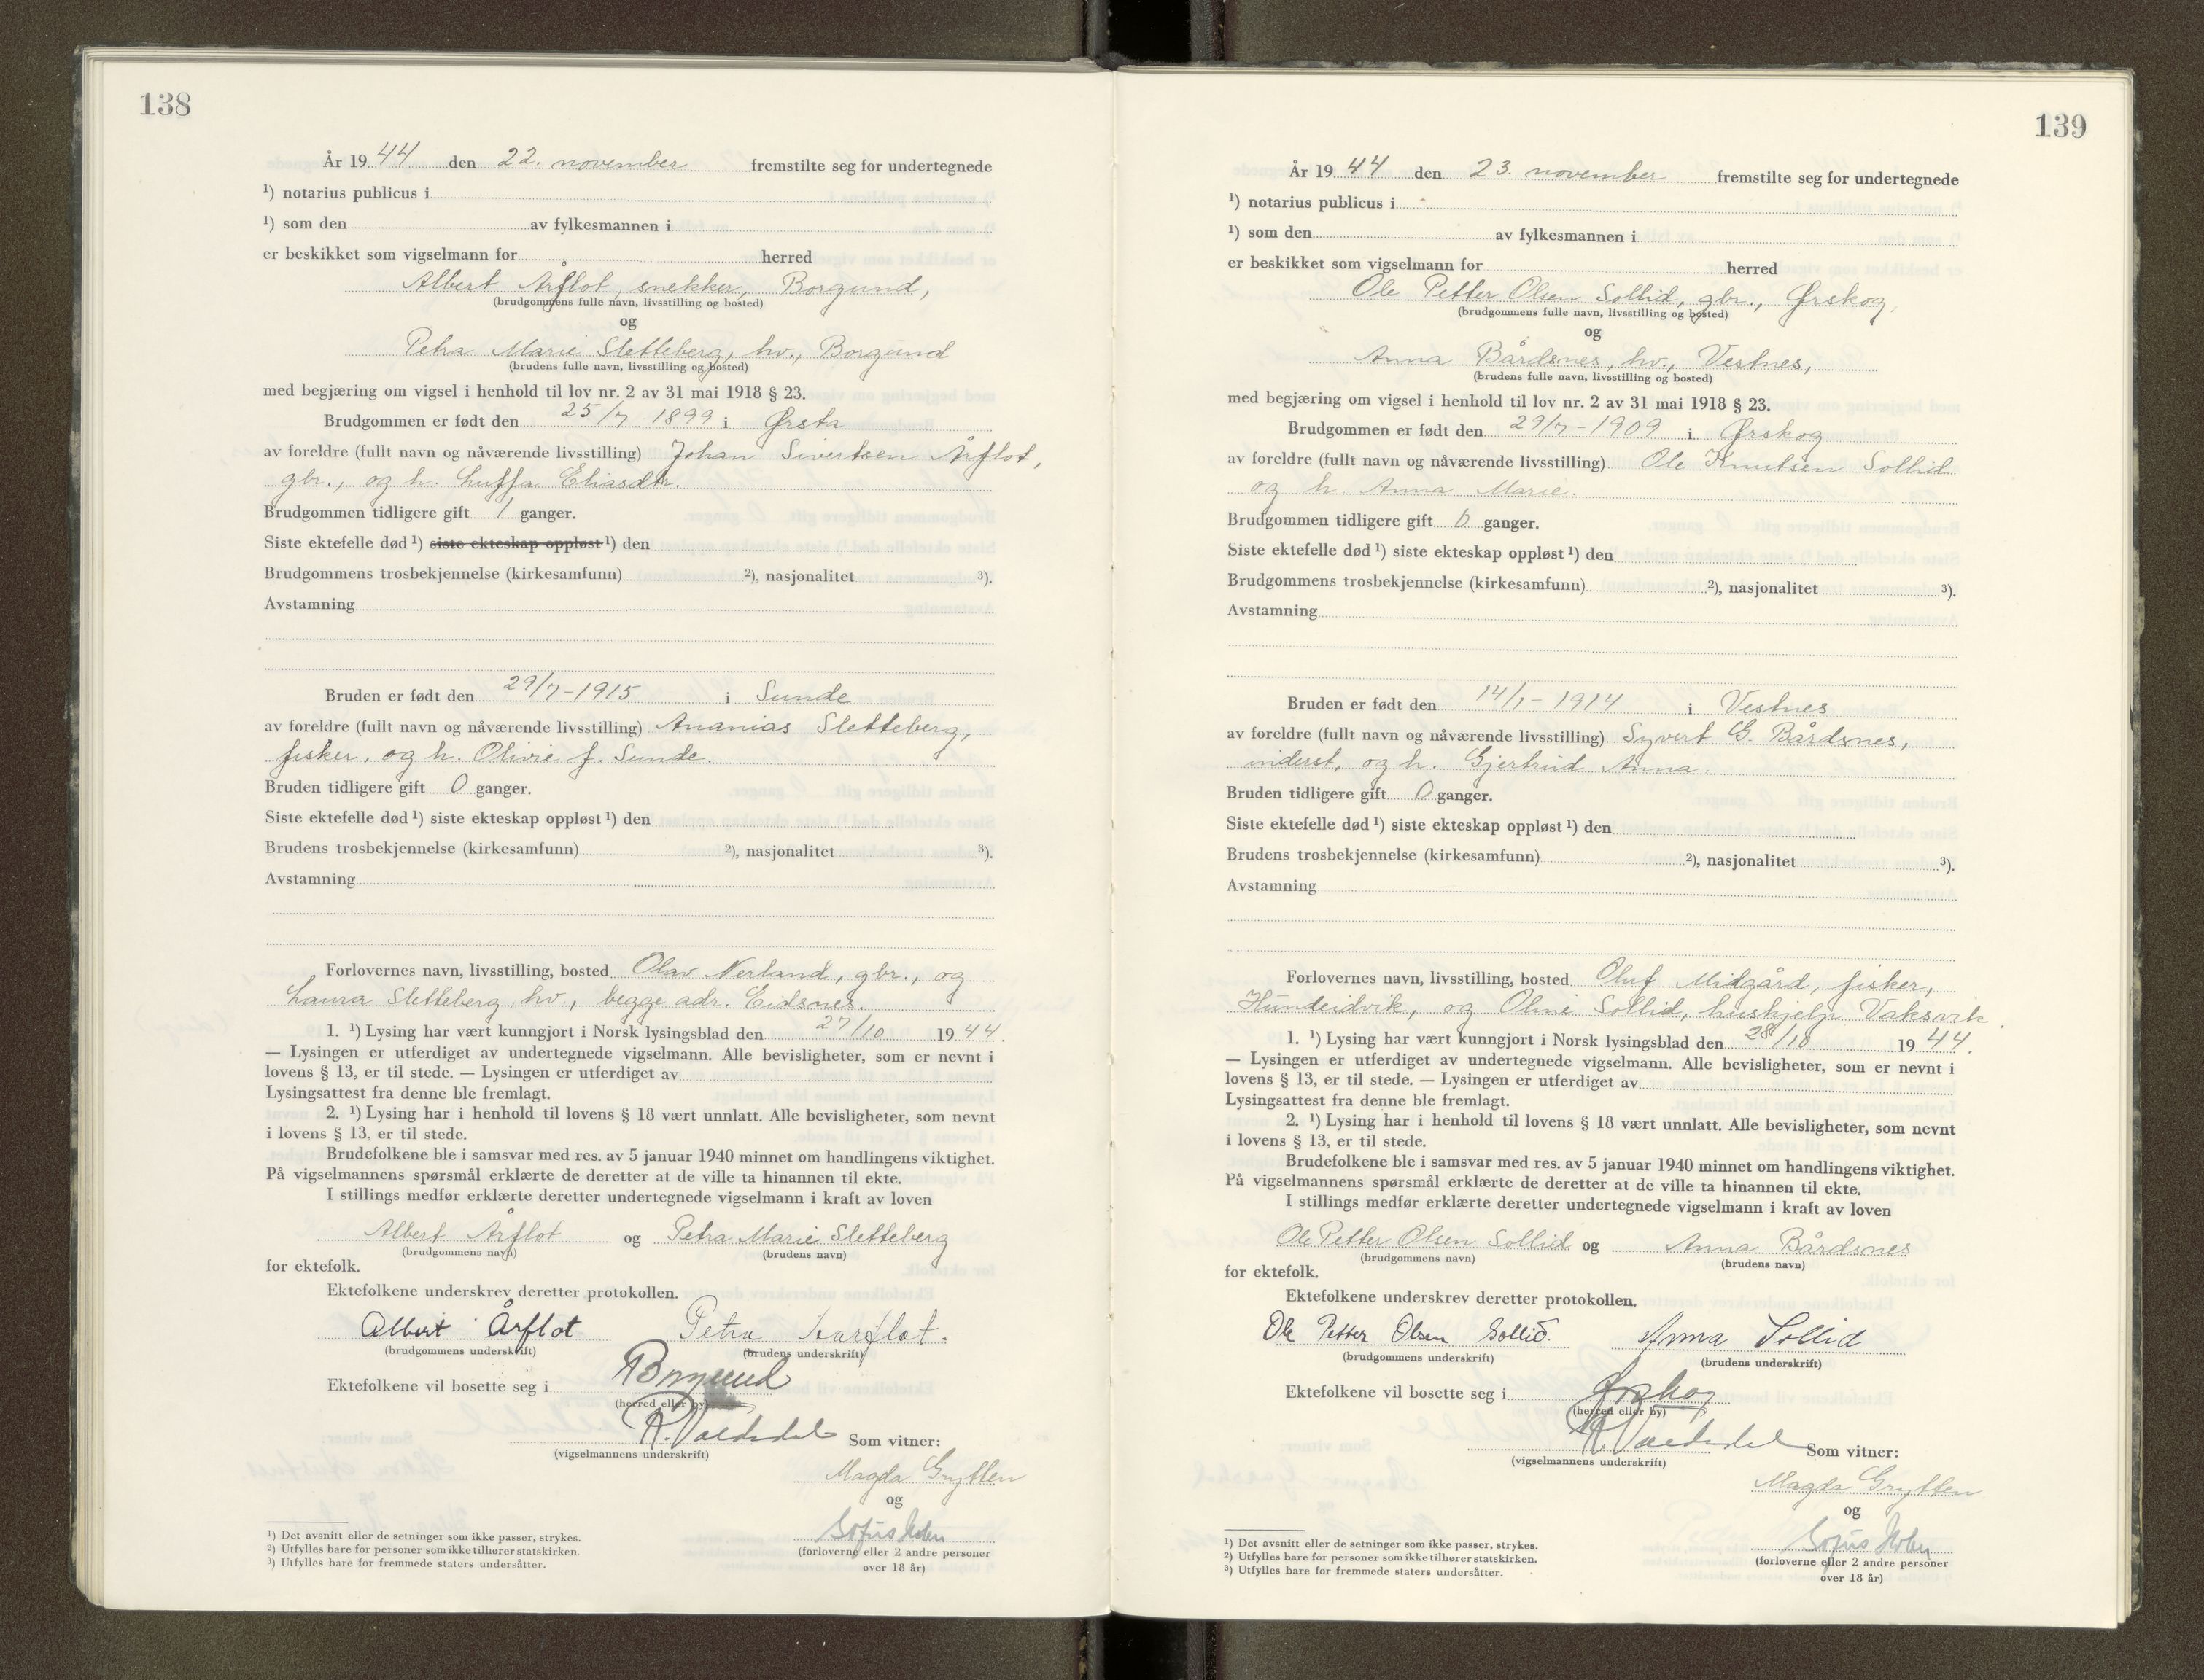 138
År 19 44 den 22. november fremstilte seg for undertegnede
¹) notarius publicus i
¹) som den av fylkesmannen i
er beskikket som vigselmann for herred
Albert Årflot, snekker, Borgund,
(brudgommens fulle navn, livsstilling og bosted)
og
Petra Marie Sletteberg, hv., Borgund
(brudens fulle navn, livsstilling og bosted)
med begjæring om vigsel i henhold til lov nr. 2 av 31 mai 1918 § 23.
Brudgommen er født den 25/7 1899 i Ørsta
av foreldre (fullt navn og nåværende livsstilling) Johan Sivertsen Årflot,
gbr., og h. Luffa Eliasdtr.
Brudgommen tidligere gift 1 ganger.
Siste ektefelle død ¹) siste ekteskap oppløst ¹) den
Brudgommens trosbekjennelse (kirkesamfunn) ²), nasjonalitet ³).
Avstamning
Bruden er født den 29/7-1915 i Sunde
av foreldre (fullt navn og nåværende livsstilling) Ananias Sletteberg,
fisker, og h. Olivie f. Sunde.
Bruden tidligere gift 0 ganger.
Siste ektefelle død ¹) siste ekteskap oppløst ¹) den
Brudens trosbekjennelse (kirkesamfunn) ²), nasjonalitet ³).
Avstamning
Forlovernes navn, livsstilling, bosted Olav Nerland, gbr., og
Laura Sletteberg, hv., begge adr. Eidsnes.
1. ¹) Lysing har vært kunngjort i Norsk lysingsblad den 27/10 19 44.
— Lysingen er utferdiget av undertegnede vigselmann. Alle bevisligheter, som er nevnt i
lovens § 13, er til stede. — Lysingen er utferdiget av
Lysingsattest fra denne ble fremlagt.
2. ¹) Lysing har i henhold til lovens § 18 vært unnlatt. Alle bevisligheter, som nevnt
i lovens § 13, er til stede.
Brudefolkene ble i samsvar med res. av 5 januar 1940 minnet om handlingens viktighet.
På vigselmannens spørsmål erklærte de deretter at de ville ta hinannen til ekte.
I stillings medfør erklærte deretter undertegnede vigselmann i kraft av loven
Albert Årflot og Petra Marie Sletteberg
(brudgommens navn) (brudens navn)
for ektefolk.
Ektefolkene underskrev deretter protokollen.
Albert Årflot Petra Aarflot.
(brudgommens underskrift) (brudens underskrift)
Ektefolkene vil bosette seg i Borgund
(herred eller by)
R. Valdedal Som vitner:
(vigselmannens underskrift)
Magda Grytten
og
Sofus Holen
(forloverne eller 2 andre personer
over 18 år)
¹) Det avsnitt eller de setninger som ikke passer, strykes.
²) Utfylles bare for personer som ikke tilhører statskirken.
³) Utfylles bare for fremmede staters undersåtter.
139
År 19 44 den 23. november fremstilte seg for undertegnede
¹) notarius publicus i
¹) som den av fylkesmannen i
er beskikket som vigselmann for herred
Ole Petter Olsen Sollid, gbr., Ørskog,
(brudgommens fulle navn, livsstilling og bosted)
og
Anna Bårdsnes, hv., Vestnes,
(brudens fulle navn, livsstilling og bosted)
med begjæring om vigsel i henhold til lov nr. 2 av 31 mai 1918 § 23.
Brudgommen er født den 29/7-1909 i Ørskog
av foreldre (fullt navn og nåværende livsstilling) Ole Knutsen Sollid
og h. Anna Marie.
Brudgommen tidligere gift 0 ganger.
Siste ektefelle død ¹) siste ekteskap oppløst ¹) den
Brudgommens trosbekjennelse (kirkesamfunn) ²), nasjonalitet ³).
Avstamning
Bruden er født den 14/1-1914 i Vestnes
av foreldre (fullt navn og nåværende livsstilling) Syvert G. Bårdsnes,
inderst, og h. Gjertrud Anna
Bruden tidligere gift 0 ganger.
Siste ektefelle død ¹) siste ekteskap oppløst ¹) den
Brudens trosbekjennelse (kirkesamfunn) ²), nasjonalitet ³).
Avstamning
Forlovernes navn, livsstilling, bosted Oluf Midgård, fisker,
Hundeidvik, og Oline Sollid, hushjelp Vaksvik.
1. ¹) Lysing har vært kunngjort i Norsk lysingsblad den 28/10 19 44.
— Lysingen er utferdiget av undertegnede vigselmann. Alle bevisligheter, som er nevnt i
lovens § 13, er til stede. — Lysingen er utferdiget av
Lysingsattest fra denne ble fremlagt.
2. ¹) Lysing har i henhold til lovens § 18 vært unnlatt. Alle bevisligheter, som nevnt
i lovens § 13, er til stede.
Brudefolkene ble i samsvar med res. av 5 januar 1940 minnet om handlingens viktighet.
På vigselmannens spørsmål erklærte de deretter at de ville ta hinannen til ekte.
I stillings medfør erklærte deretter undertegnede vigselmann i kraft av loven
Ole Petter Olsen Sollid og Anna Bårdsnes
(brudgommens navn) (brudens navn)
for ektefolk.
Ektefolkene underskrev deretter protokollen.
Ole Petter Olsen Sollid. Anna Sollid
(brudgommens underskrift) (brudens underskrift)
Ektefolkene vil bosette seg i Ørskog
(herred eller by)
R. Valdedal Som vitner:
(vigselmannens underskrift)
Magda Grytten
og
Sofus Holen
(forloverne eller 2 andre personer
over 18 år)
¹) Det avsnitt eller de setninger som ikke passer, strykes.
²) Utfylles bare for personer som ikke tilhører statskirken.
³) Utfylles bare for fremmede staters undersåtter.